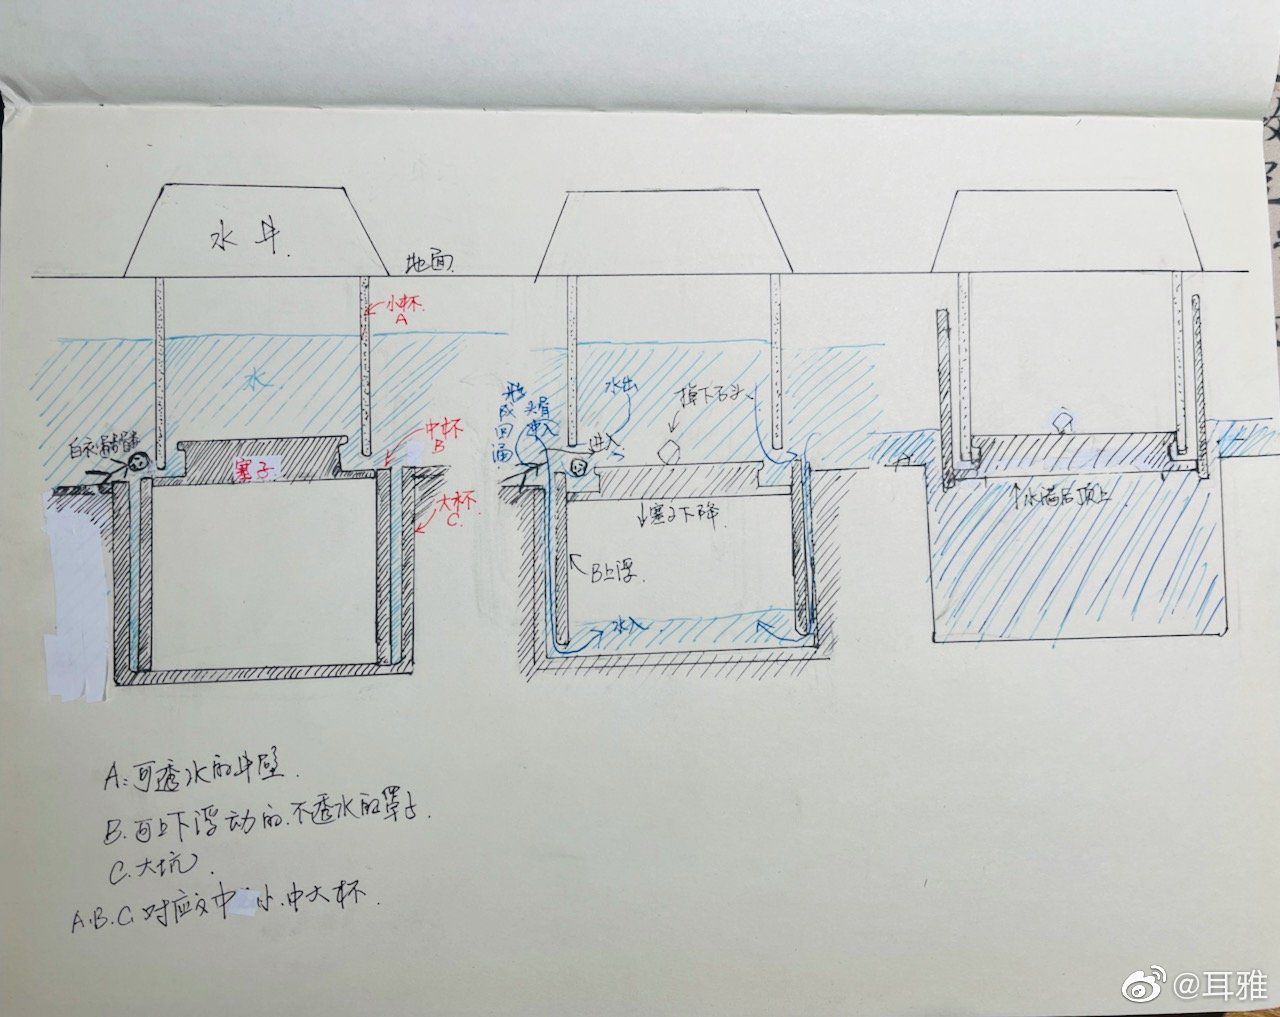 水井.
地面
小杯
A
水
中杯
B
白衣骷髅
塞子
大杯
C.
形成回涌
水出
进入
掉下石头
↓塞子下降
B上浮.
水入
↑水满后顶上
A:可透水的井壁.
B.可上下浮动的.不透水的罩子.
C.大坑.
A.B.C.对应文中 小.中大杯.
@耳雅